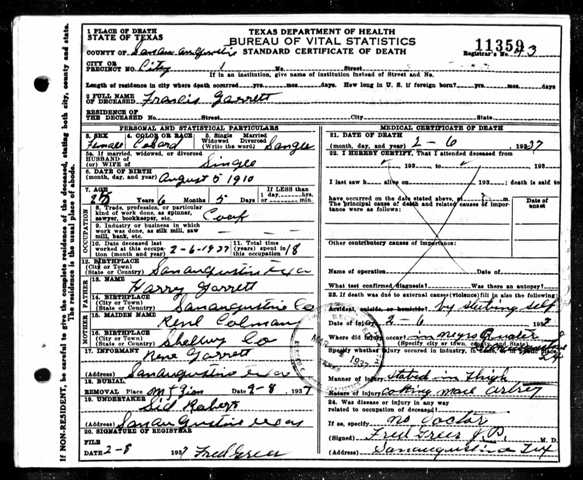 1 PLACE OF DEATH
STATE OF TEXAS
TEXAS DEPARTMENT OF HEALTH
BUREAU OF VITAL STATISTICS
STANDARD CERTIFICATE OF DEATH
11359
COUNTY OF San augustine
Registrar's No. 43
CITY OR
PRECINCT NO. City No. Street
If in an institution, give name of institution instead of Street and No.
Length of residence in city where death occurred yrs. mos. days. How long in U. S. if foreign born? yrs. mos. days
2 FULL NAME
OF DECEASED Francis Garrett
RESIDENCE OF
THE DECEASED No. Street City State
PERSONAL AND STATISTICAL PARTICULARS
3. SEX 4. COLOR OR RACE 5. Single Married
Widowed Divorced
(Write the word)
Female Colard Single
5a. If married, widowed, or divorced
HUSBAND OF
(or) WIFE OF Single
6. DATE OF BIRTH
(month, day, and year) August 5 1910
7. AGE Years 6 Months 5 Days
IF LESS than
1 day hrs.
min.
OCCUPATION
8. Trade, profession, or particular
kind of work done, as spinner,
sawyer, bookkeeper, etc. Cook
9. Industry or business in which
work was done, as silk mill, saw
mill, bank, etc.
10. Date deceased last
worked at this occupa-
tion (month and year) 2-6-1937
11. Total time
(years) spent in
this occupation 18
12. BIRTHPLACE
(City or Town)
(State or Country) San augustine
FATHER
13. NAME Harry Garrett
14. BIRTHPLACE
(City or Town)
(State or Country) San augustine Co
MOTHER
15. MAIDEN NAME Colman
16. BIRTHPLACE
(City or Town)
(State or Country) Shelby Co
17. INFORMANT Garrett
(Address) San augustine
18. BURIAL
REMOVAL Place Mt Zion Date 2-8 1937
19. UNDERTAKER Sid Roberts
(Address) San augustine
20. SIGNATURE OF REGISTRAR
FILE
DATE 2-8 1937 Fred Greer
MEDICAL CERTIFICATE OF DEATH
21. DATE OF DEATH
(month, day, and year) 2-6 1937
22. I HEREBY CERTIFY, That I attended deceased
from 193 to 193
I last saw h alive on 193 death is said to
have occurred on the date stated above, at m.
The principal cause of death and related causes of impor-
tance were as follows:
Date of
onset
Other contributory causes of importance:
Name of operation Date of
What test confirmed diagnosis? Was there an autopsy?
23. If death was due to external causes (violence) fill in also the following
Accident, suicide, or homicide? by Self
Date of injury 2-6 193
Where did injury occur? in negro
Specify city or town, County and State
Specify whether injury occurred in industry, in
Manner of injury in thigh
Nature of injury
24. Was disease or injury in any way
related to occupation of deceased?
If so, specify no doctor
(Signed) Fred Greer J.P. M. D.
(Address) San augustine Tex
IF NON-RESIDENT, be careful to give the complete residence of the deceased, stating both city, county and state.